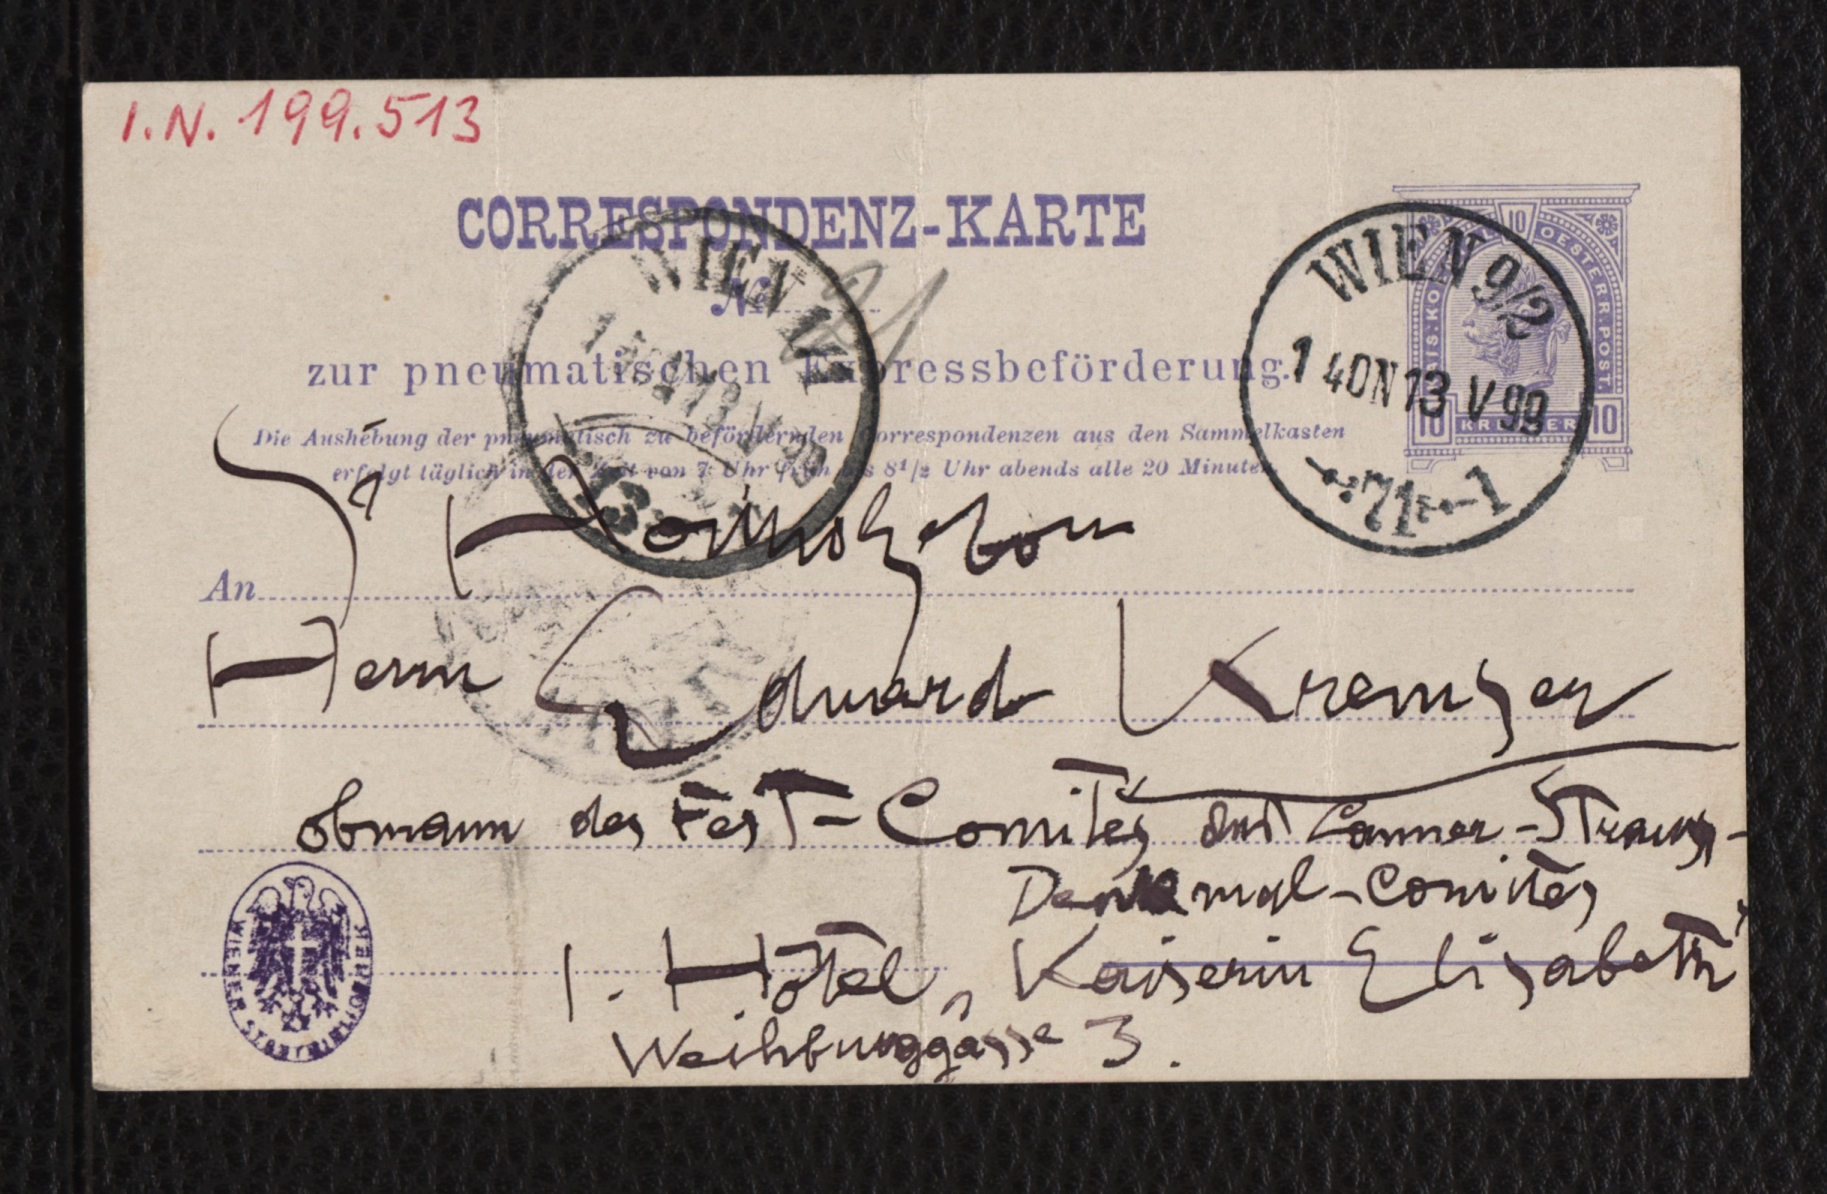 I.N. 199.513
CORRESPONDENZ-KARTE
No 21
zur pneumatischen Expressbeförderung.
Die Aushebung der pneumatisch zu befördernden Correspondenzen aus den Sammelkasten
erfolgt täglich in der Zeit von 7 Uhr früh bis 8½ Uhr abends alle 20 Minuten.
WIEN 9/2
1 40N 13 V 99
71 1
KAIS: KÖ OESTERR. POST.
10
10 KREUZER 10
WIEN
13 V 99
Sr Hochwohlgeborn
An
Herrn Eduard Kremser
Obmann des Fest-Comités des Lanner-Strauss-
Denkmal-Comités
I. Hôtel „Kaiserin Elisabeth"
Weihburggasse 3.
WIENER STADTBIBLIOTHEK